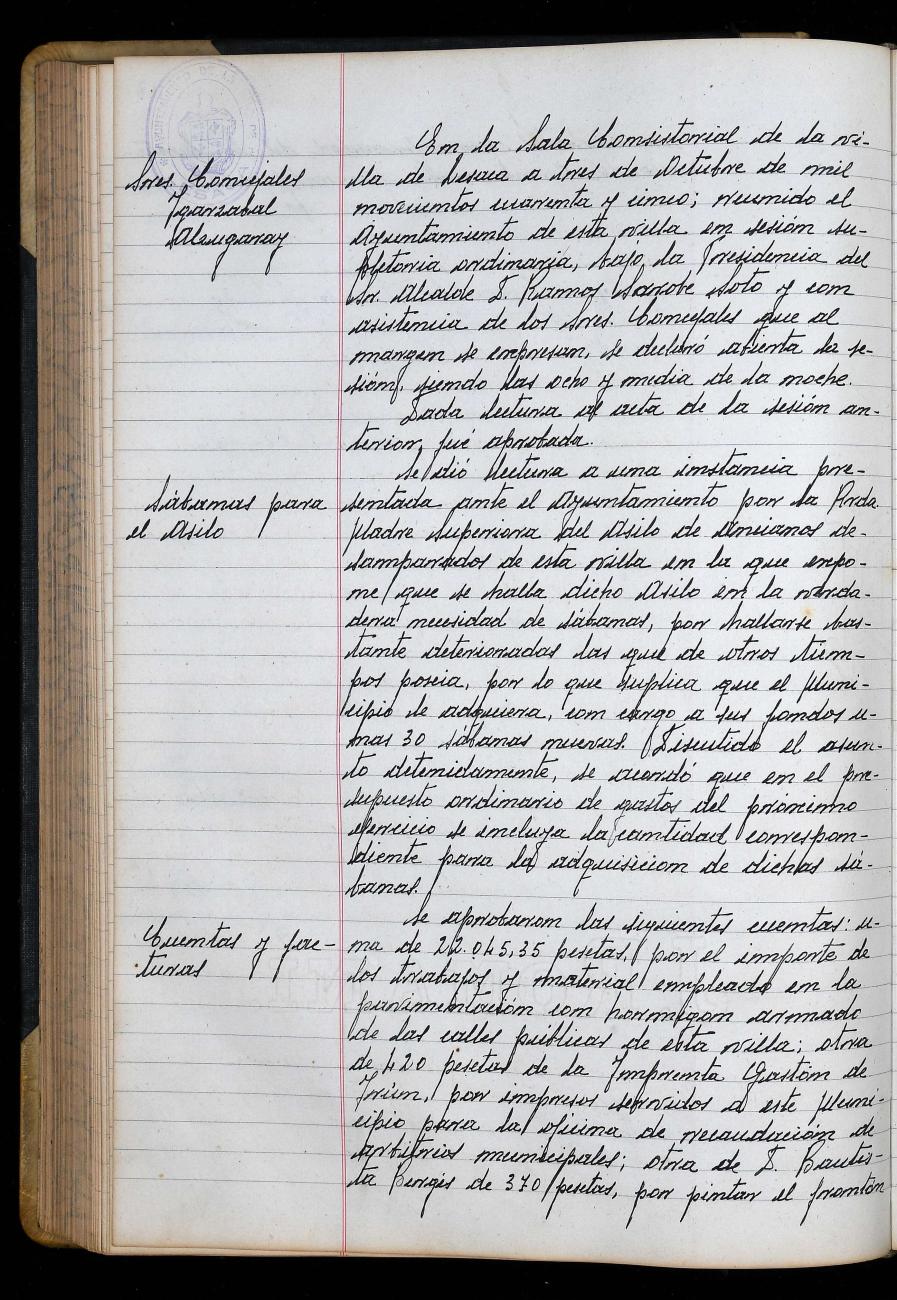 AYUNTAMIENTO DE LA
Sres. Concejales
Ygarzabal
Alzugaray
En la Sala Consistorial de la vi-
lla de Lesaca a tres de Octubre de mil
novecientos cuarenta y cinco; reunido el
Ayuntamiento de esta villa en sesión su-
pletoria ordinaria, bajo la Presidencia del
Sr. Alcalde D. Ramos Sarobe Soto y con
asistencia de los Sres. Concejales que al
margen se expresan, se declaró abierta la se-
sión, siendo las ocho y media de la noche.
Dada lectura al acta de la sesión an-
terior, fué aprobada.
Sábanas para
el Asilo
Se dió lectura a una instancia pre-
sentada ante el Ayuntamiento por la Rvda.
Madre Superiora del Asilo de Ancianos de-
samparados de esta villa en la que expo-
ne que se halla dicho Asilo en la verda-
dera necesidad de sábanas, por hallarse bas-
tante deterioradas las que de otros tiem-
pos poseia, por lo que suplica que el Muni-
cipio le adquiera, con cargo a sus fondos u-
nas 30 sábanas nuevas. Discutido el asun-
to detenidamente, se acordó que en el pre-
supuesto ordinario de gastos del próximo
ejercicio se incluya la cantidad correspon-
diente para la adquisicion de dichas sá-
banas.
Cuentas y fac-
turas
Se aprobaron las siguientes cuentas: u-
na de 22.045,35 pesetas, por el importe de
los trabajos y material empleado en la
pavimentación con hormigon armado
de las calles públicas de esta villa; otra
de 420 pesetas de la Imprenta Gastón de
Irún, por impresos servidos a este Muni-
cipio para la oficina de recaudación de
arbitrios municipales; otra de D. Bautis-
ta Berges de 370 pesetas, por pintar el frontón